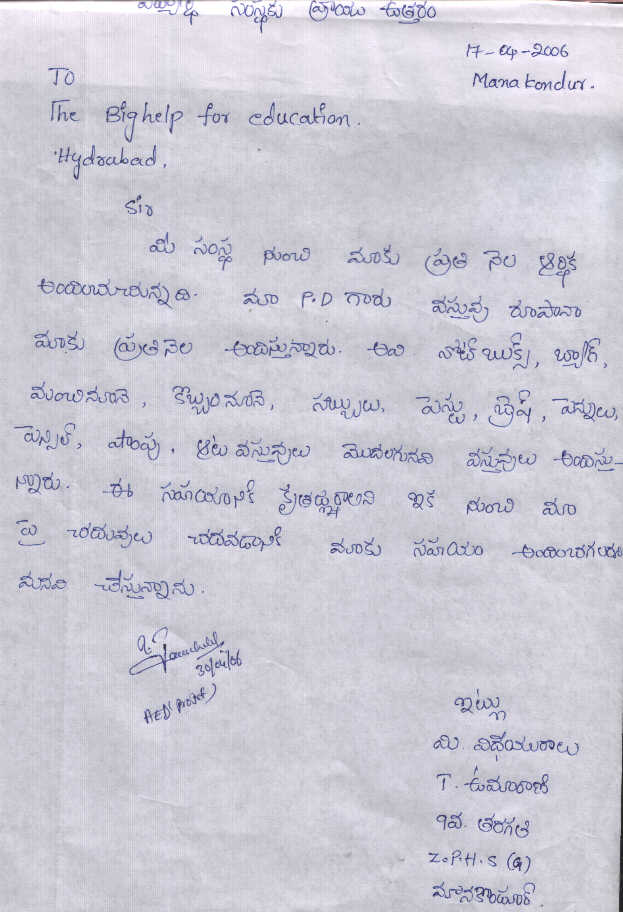 సంస్థకు వ్రాయు ఉత్తరం
17-04-2006
Manakondur.
TO
The Bighelp for education.
Hydrabad,
Sir
మీ సంస్థ నుంచి మాకు ప్రతి నెల ఆర్థిక
అందించుచున్నది. మా P.D గారు వస్తువు రూపానా
మాకు ప్రతినెల అందిస్తున్నారు. అవి నోట్ బుక్స్, బ్యాగ్,
మంచినూనె, కొబ్బరినూనె, సబ్బులు, పేస్టు, బ్రెష్, పెన్నులు,
పెన్సిల్, షాంపు, ఆట వస్తువులు మొదలగునవి వస్తువులు అందిస్తు-
న్నారు. ఈ సహయానికి కృతజ్ఞురాలని ఇక నుంచి మా
పై చదువులు చదవడానికి మాకు సహయం అందించగలరని
మనవి చేస్తున్నాను.
30/04/06
ఇట్లు
మి. విధేయురాలు
T. ఉమారాణి
9వ. తరగతి
Z.P.H.S (G)
మానకొండూర్.